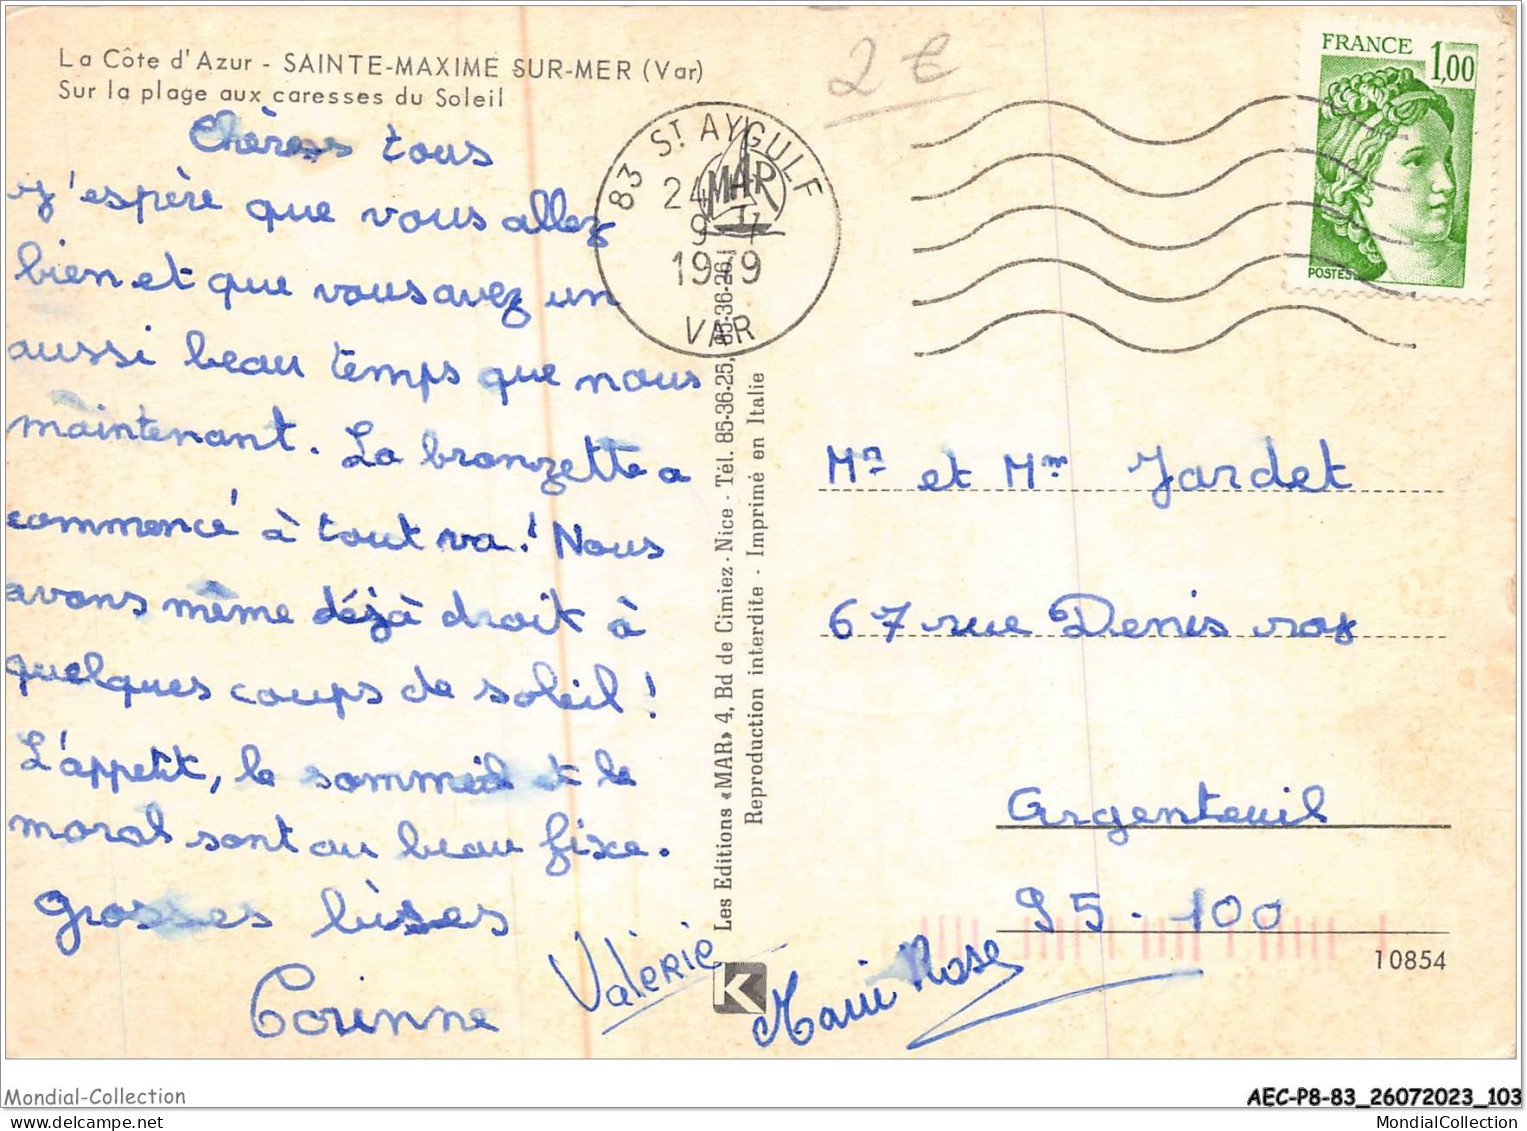 La Côte d'Azur - SAINTE-MAXIME SUR-MER (Var)
Sur la plage aux caresses du Soleil
2 €
83 ST AYGULF
24
9 - 7
1979
VAR
FRANCE
1,00
POSTES
Chères tous
j'espère que vous allez
bien et que vous avez un
aussi beau temps que nous
maintenant. La bronzette a
commencé à tout va! Nous
avons même déjà droit à
quelques coups de soleil!
L'appetit, le sommeil et le
moral sont au beau fixe.
grosses bises
Corinne
Valérie
Marie Rose
Les Editions «MAR» 4, Bd de Cimiez - Nice - Tél. 85-36-25, 85-36-26
Reproduction interdite - Imprimé en Italie
MAR
K
Mr et Mme Jardet
67 rue Denis roy
Argenteuil
95-100
10854
Mondial-Collection
AEC-P8-83_26072023_103
MondialCollection